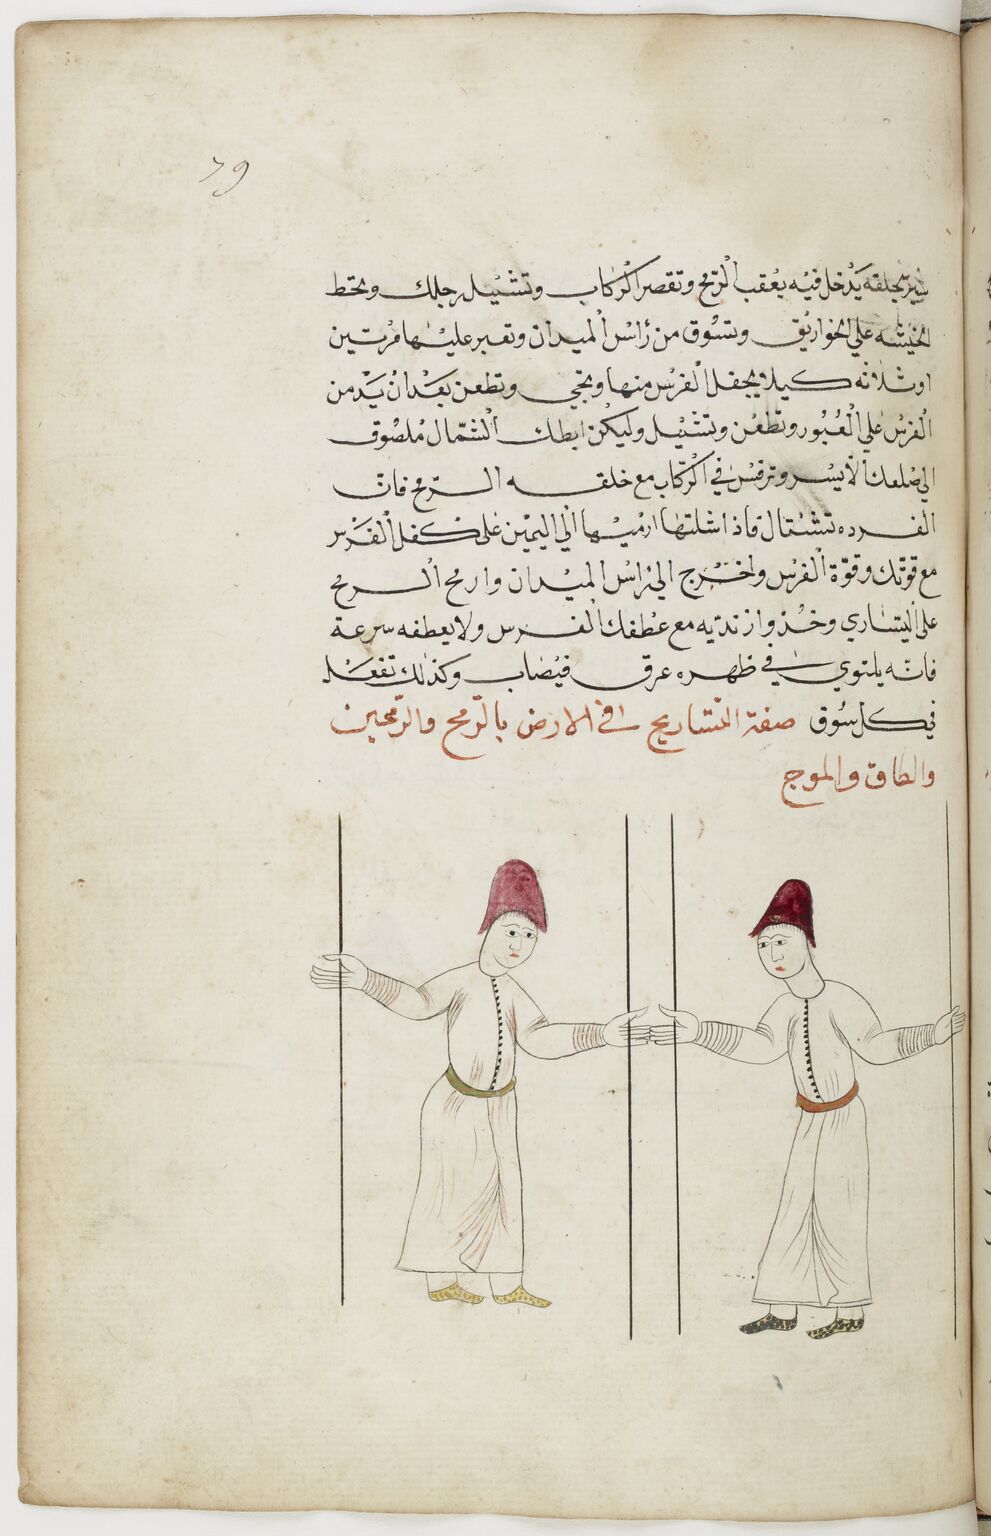 79
بحلقه يدخل فيه بعقب الرمح وتقصر الركاب وتشيل رجلك وتحط
الخيشه علي الخواريق وتسوق من رأس الميدان وتعبر عليها مرتين
او ثلاثه كيلا يجفل الفرس منها وتجي وتطعن بعد ان يدمن
الفرس علي العبور وتطعن وتشيل وليكن ابطك الشمال ملصوق
الي ضلعك الايسر وترفس في الركاب مع خلقه الرمح فان
الفرده تشتال فاذا شلتها ارميها الي اليمين على كفل الفرس
مع قوتك وقوة الفرس واخرج الي راس الميدان وارمح الرمح
على اليساري وخذ وازنديه مع عطفك الفرس ولا يعطفه سرعة
فانه يلتوي في ظهره عرق فيصاب وكذلك تفعل
في كل سوق صفة التساريح في الارض بالرمح والرمحين
والطاق والموج